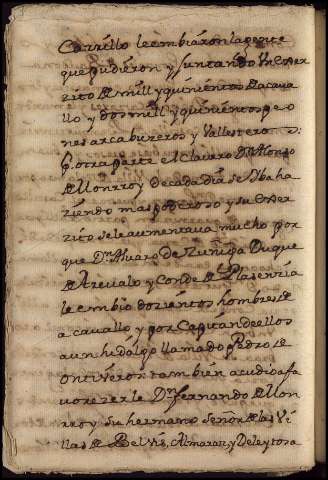 Carrillo le embiaron la gente
que pudieron y Juntando Un Exer
zito de mill y quinientos de acava
llo y dos mill y quinientos peo
nes arcabuzeros y Vallesteros:
p.r otra parte el Clavero Dn Alonso
de Monrroy de cada dia se Yba ha
ziendo mas poderoso y su Exer
zito sele aumentava mucho por
que Dn Alvaro de Zuñiga Duque
de Arevalo y Conde de Plasenzia
le embio dozientos hombres de
a cavallo y por Capitan de ellos
a un hidalgo llamado Pedro de
Ontiveros: tambien acudio a fa
vorezerle Dn fernando de Mon
rroy su hermano Señor de las Vi
llas de Belvis, Almaraz, y Deleytosa